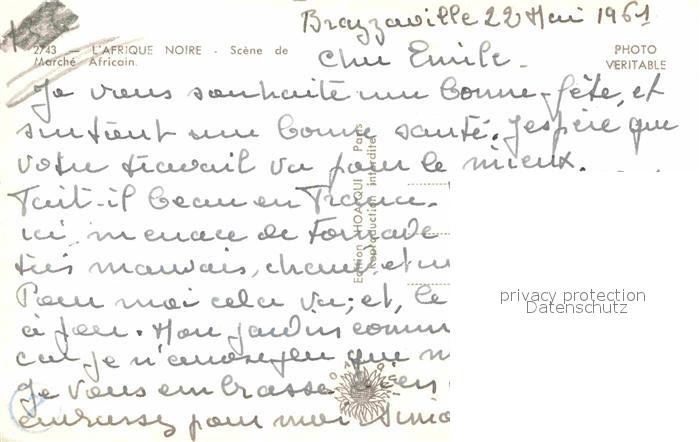 Brazzaville 22 Mai 1961
2743 - L'AFRIQUE NOIRE - Scène de
Marché Africain.
PHOTO
VERITABLE
Cher Emile.
Je vous souhaite une bonne fête, et
surtout une bonne santé. J'espère que
votre travail va pour le mieux.
Fait-il beau en France.
ici, menace de Tornade
très mauvais, chaud, et
Pour moi cela va; et, le
à peu. Mon jardin comm
car je n'
que
Je vous embrasse bien
embrassez pour moi Simo
Edition "HOA-QUI" Paris
Reproduction interdite
privacy protection
Datenschutz